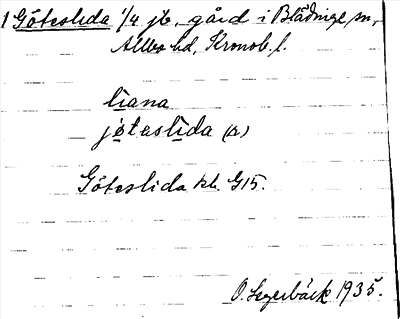 1 Göteslida 1/4 jb, gård i Blädinge sn,
Allbo hd, Kronob. l.
liana
jøteslida (2)
Göteslida kb. G15.
O. Segerbäck 1935.